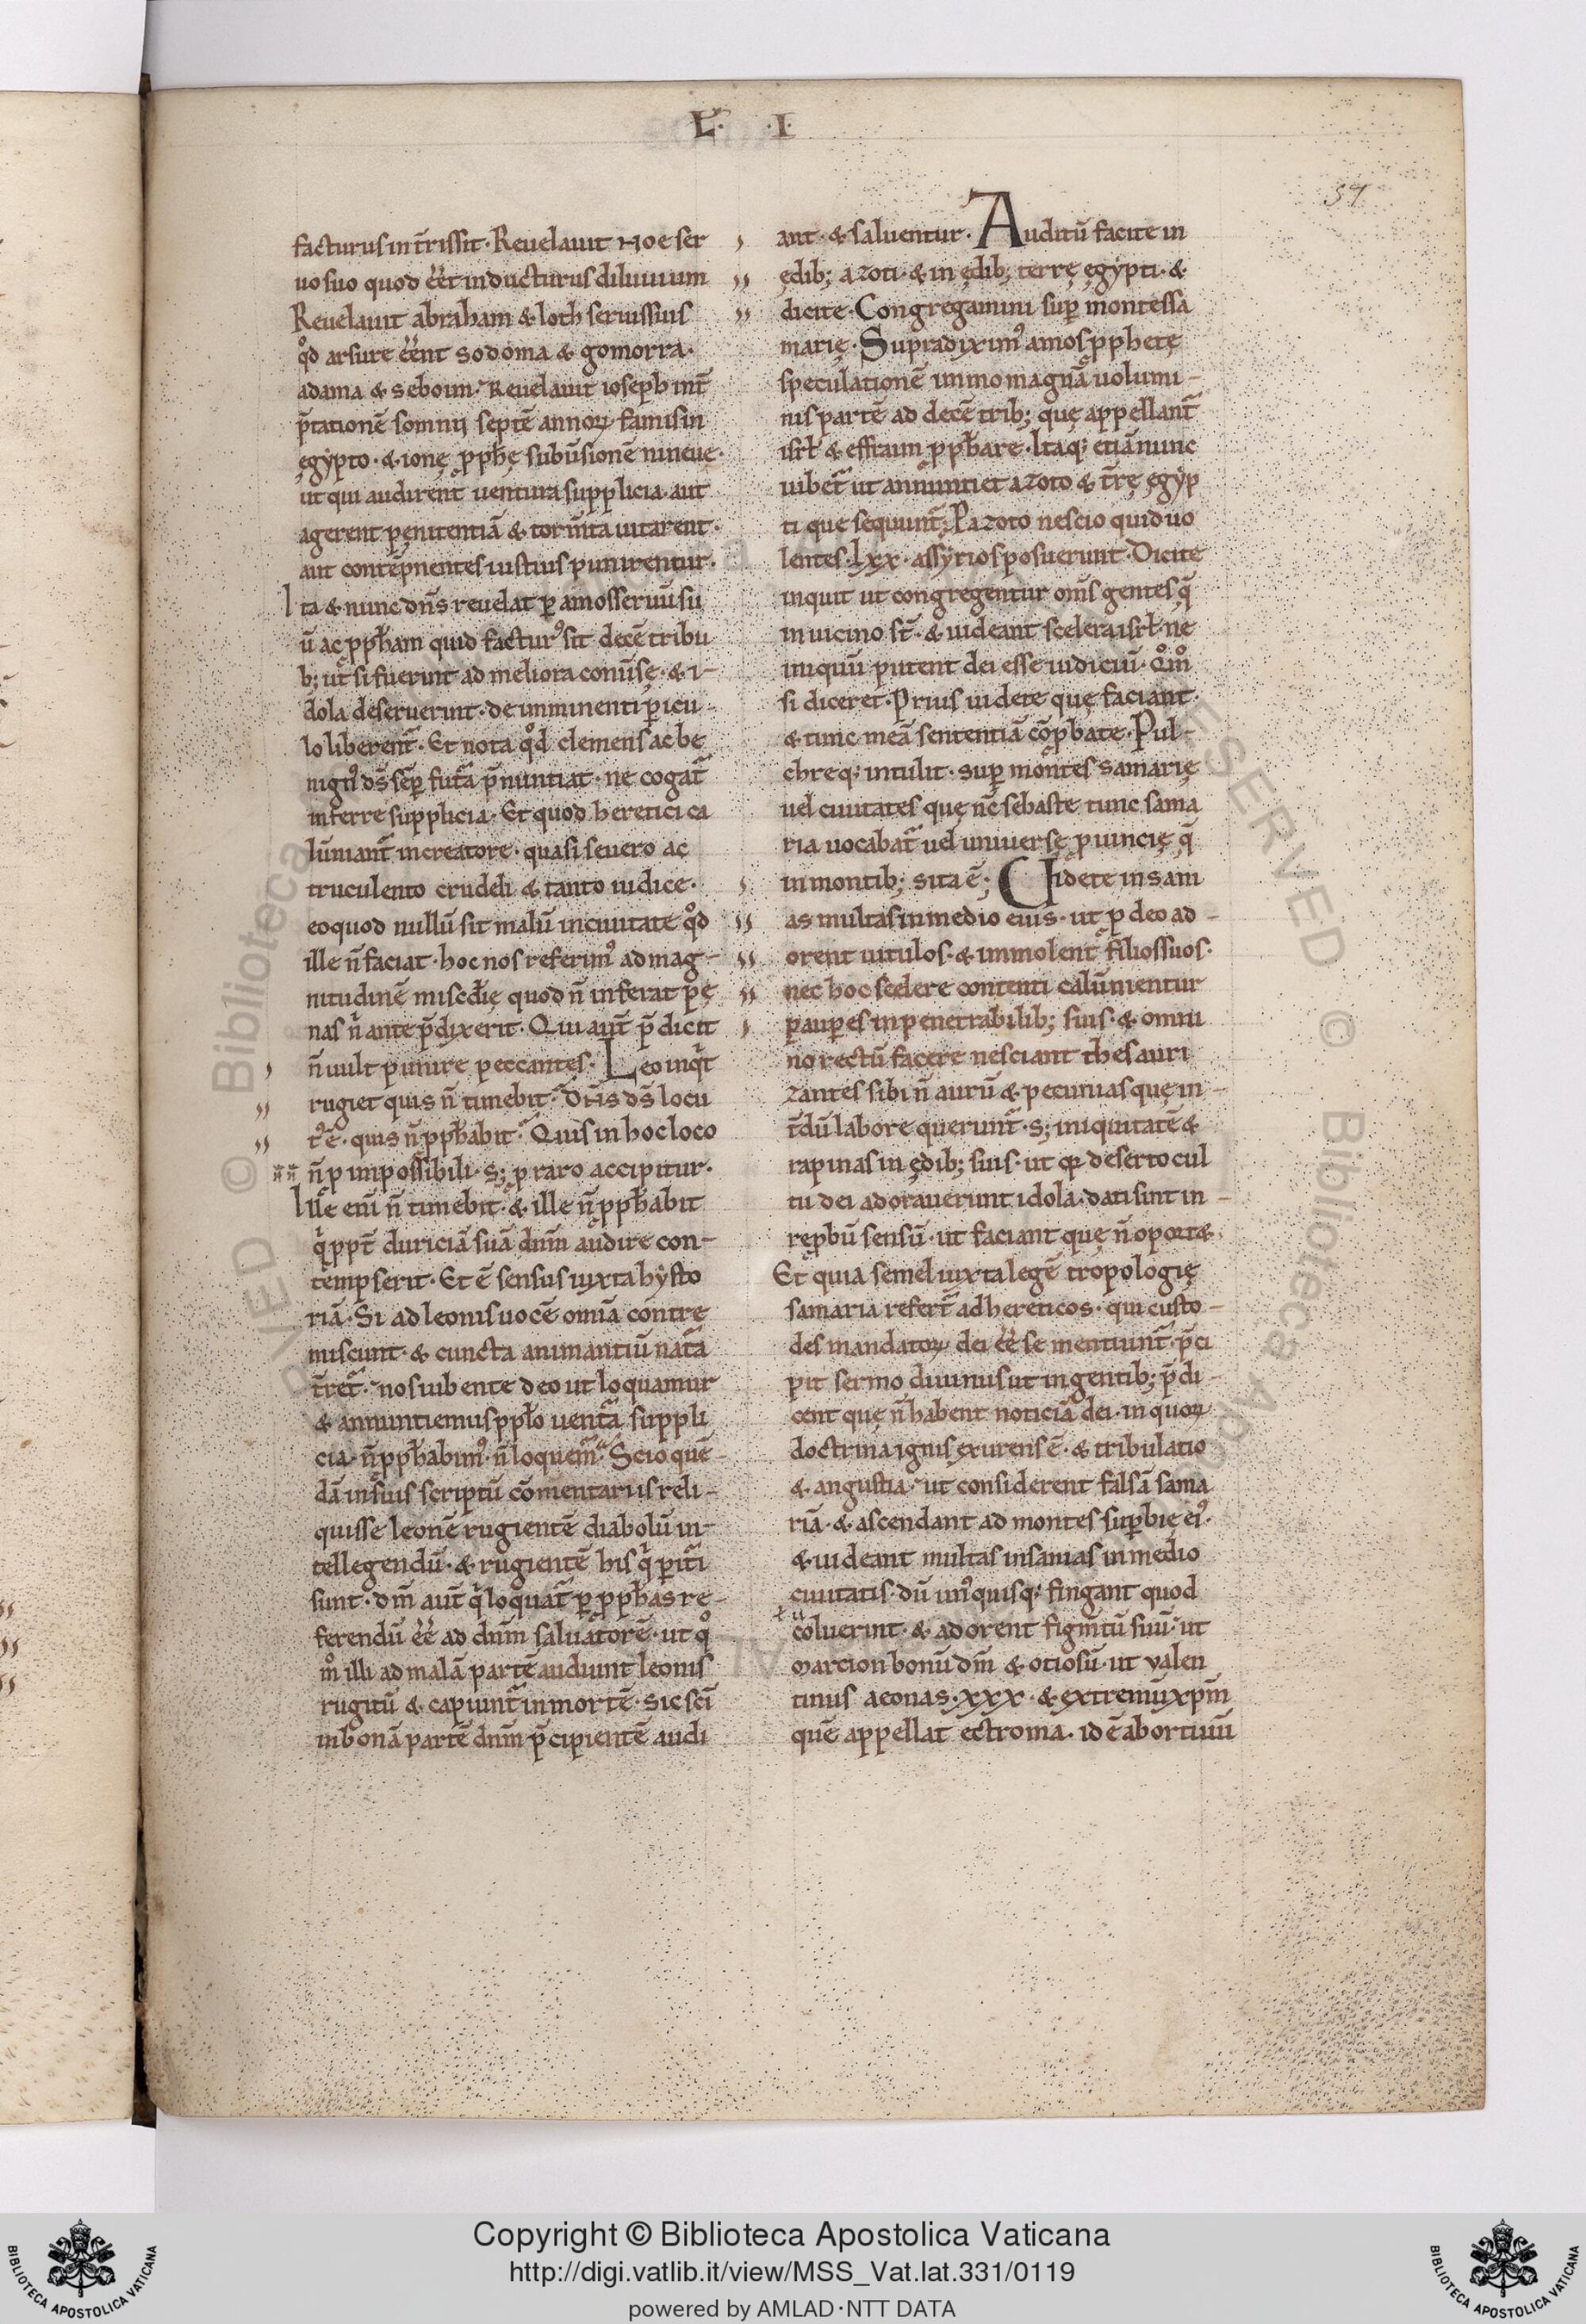 L. .I.
57
facturus in t̄ris sit. Reuelauit Noe ser
uo suo quod ēēt inducturus diluuium
Reuelauit abraham & loth seruis suis
qd̊ arsure ēēnt sodoma & gomorra.
adama & seboim. Reuelauit ioseph int̄
p̄tationē somnij septē annoꝝ famis in
ęgypto. & ionę ꝓph̄ę subūsionē nineuę.
ut qui audirent uentura supplicia. aut
agerent pęnitentiā & torm̄ta uitarent.
aut contēpnentes iustius punirentur.
Ita & nunc dn̄s reuelat ꝑ amos seruū su
ū ac ꝓph̄am quid facturꝰ sit decē tribu
b; ut si fuerint ad meliora conūsę. & i-
dola deseruerint. de imminenti ꝑicu-
lo liberent̄. Et nota qd̊ clemens ac be
nignꝰ ds̄ sēꝑ fut͛a p̄nuntiat. ne cogat͛
inferre supplicia. Et quod heretici ca
lūniant̄ in creatore. quasi seuero ac
truculento crudeli & tanto iudice.
eo quod nullū sit malū in ciuitate qd̊
ille n̄ faciat. hoc nos referimꝰ ad mag-
nitudinē misc̄dię quod n̄ inferat pę
nas n̄ ante p̄dixerit. Qui aut̄ p̄dicit
n̄ uult punire peccantes. Leo inqͥt
rugiet quis n̄ timebit. Dn̄s ds̄ locu
tꝰ ē. quis n̄ ꝓph̄abit. Quis in hoc loco
n̄ p impossibili. s; ꝓ raro accipitur.
Ille enī n̄ timebit. & ille n̄ ꝓph̄abit
qͥ ꝓpt̄ duriciā suā dnm̄ audire con-
tempserit. Et ē sensus iuxta hysto
riā. Si ad leonis uocē omīa contre
miscunt. & cuncta animantiū nat͛a
t̄ret͛. nos iubente deo ut loquamur
& annuntiemus ppło uent͛a suppli
cia. n̄ ꝓph̄abimꝰ. n̄ loquem͛. Scio quē-
dā in suis scriptū cōmentariis reli-
quisse leonē rugientē diabolū in-
tellegendū. & rugientē his qͥ ꝑit͛i
sunt. dm̄ aut̄ qͥ loquat͛ ꝑ ꝓph̄as re-
ferendū ēē ad dnm̄ saluatorē. ut qͦ
mͦ illi ad malā partē audiunt leonis
rugitū & capiunt͛ in mortē. sic sc̄i
in bonā partē dnm̄ p̄cipientē audi
ant. & saluentur. Auditū facite in
ędib; azoti. & in ędib; terrę ęgypti. &
dicite. Congregamini suꝑ montes sa
marię. Supra diximꝰ amos ꝓphetę
speculationē immo magnā uolumi-
nis partē ad decē trib; quę appellant͛
isrł & effraim ꝓph̄are. Itaq; etiā nunc
iubet͛ ut annuntiet azoto & t̄rę ęgyp
ti que sequunt͛. Pazoto nescio quid uo
lentes. lxx. assyrios posuerunt. Dicite
inquit ut congregentur om̄s gentes q̄
in uicino st̄. & uideant scelera isrł. ne
iniquū putent dei esse iudiciū. qͦmͦ
si diceret. Prius uidete quę faciant.
& tunc meā sententiā cōꝓbate. Pul-
chreq; intulit. suꝑ montes samarię
uel ciuitates quę nc̄ sebaste tunc sama
ria uocabat͛ uel uniuersę ꝓuincię q̄
in montib; sita ē; Videte insani
as multas in medio eius. ut ꝓ deo ad-
orent uitulos. & immolent filios suos.
nec hoc scelere contenti calūnientur
pauꝑes in penetrabilib; suis. & omni
no rectū facere nesciant thesauri
zantes sibi n̄ aurū & pecunias quę in-
t̄dū labore querunt͛. s; iniquitatē &
rapinas in ędib; suis. ut qꝛ deserto cul
tu dei adorauerunt idola. dati sint in-
reꝓbū sensū. ut faciant quę n̄ oport&.
Et quia semel iuxta legē tropologię
samaria refert͛ ad hereticos. qui custo-
des mandatoꝝ dei ēē se mentiunt͛. p̄ci
pit sermo diuinus ut in gentib; p̄di-
cent quę n̄ habent noticiā dei. in quoꝝ
doctrina ignis exurens ē. & tribulatio
& angustia. ut considerent falsā sama
riā. & ascendant ad montes suꝑbię eiꝰ.
& uideant multas insanias in medio
ciuitatis. dū unꝰquisq; fingant quod
ł u
coluerint. & adorent figm̄tū suū. ut
Marcion bonū dm̄ & otiosū. ut valen
tinus aeonas. xxx. & extremū xp̄m
quē appellat ectroma. id ē abortiuū
Copyright © Biblioteca Apostolica Vaticana
http://digi.vatlib.it/view/MSS_Vat.lat.331/0119
powered by AMLAD·NTT DATA
BIBLIOTECA APOSTOLICA VATICANA
BIBLIOTECA APOSTOLICA VATICANA